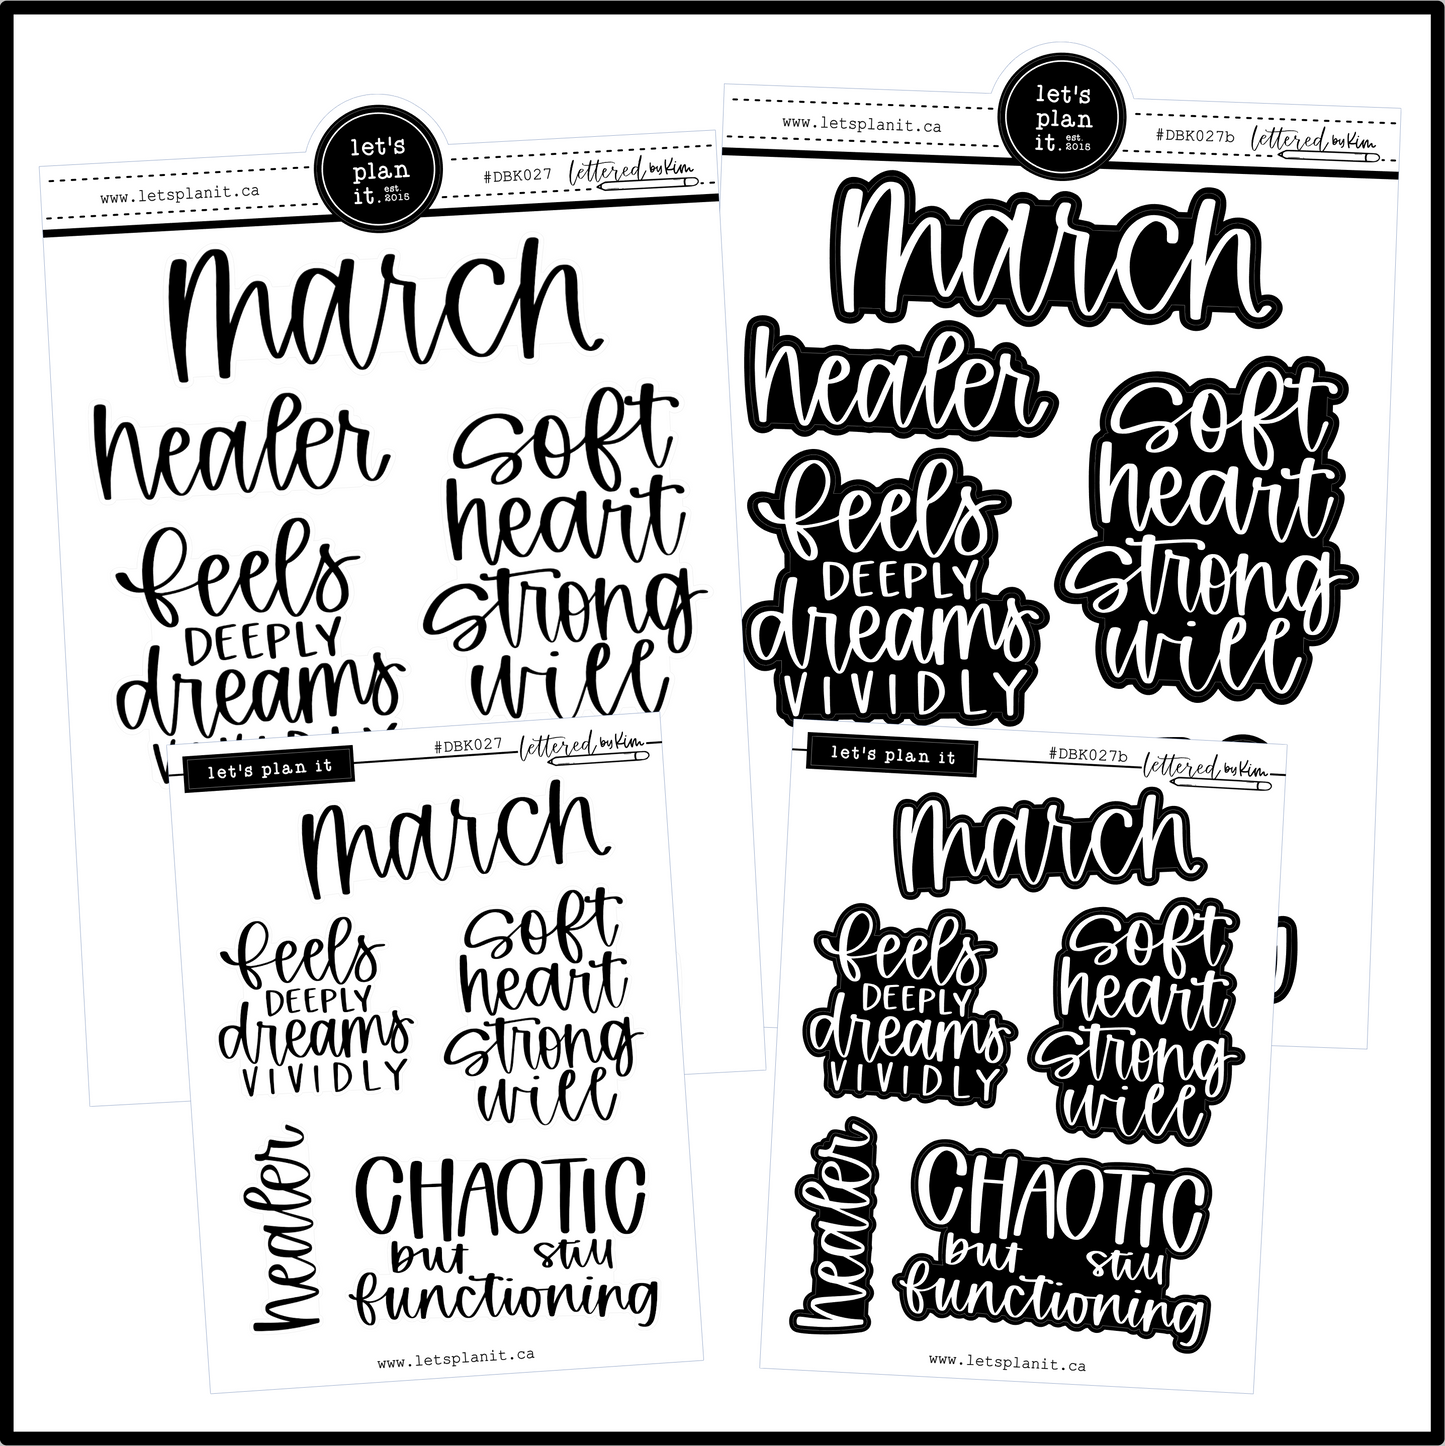 let's
plan
it. est. 2015
www.letsplanit.ca
#DBK027
lettered by Kim
march
healer
soft
heart
strong
will
feels
DEEPLY
dreams
VIVIDLY
let's
plan
it. est. 2015
www.letsplanit.ca
#DBK027b
lettered by Kim
march
healer
soft
heart
strong
will
feels
DEEPLY
dreams
VIVIDLY
let's plan it
#DBK027
lettered by Kim
march
feels
DEEPLY
dreams
VIVIDLY
soft
heart
strong
will
healer
CHAOTIC
but still
functioning
www.letsplanit.ca
let's plan it
#DBK027b
lettered by Kim
march
feels
DEEPLY
dreams
VIVIDLY
soft
heart
strong
will
healer
CHAOTIC
but still
functioning
www.letsplanit.ca